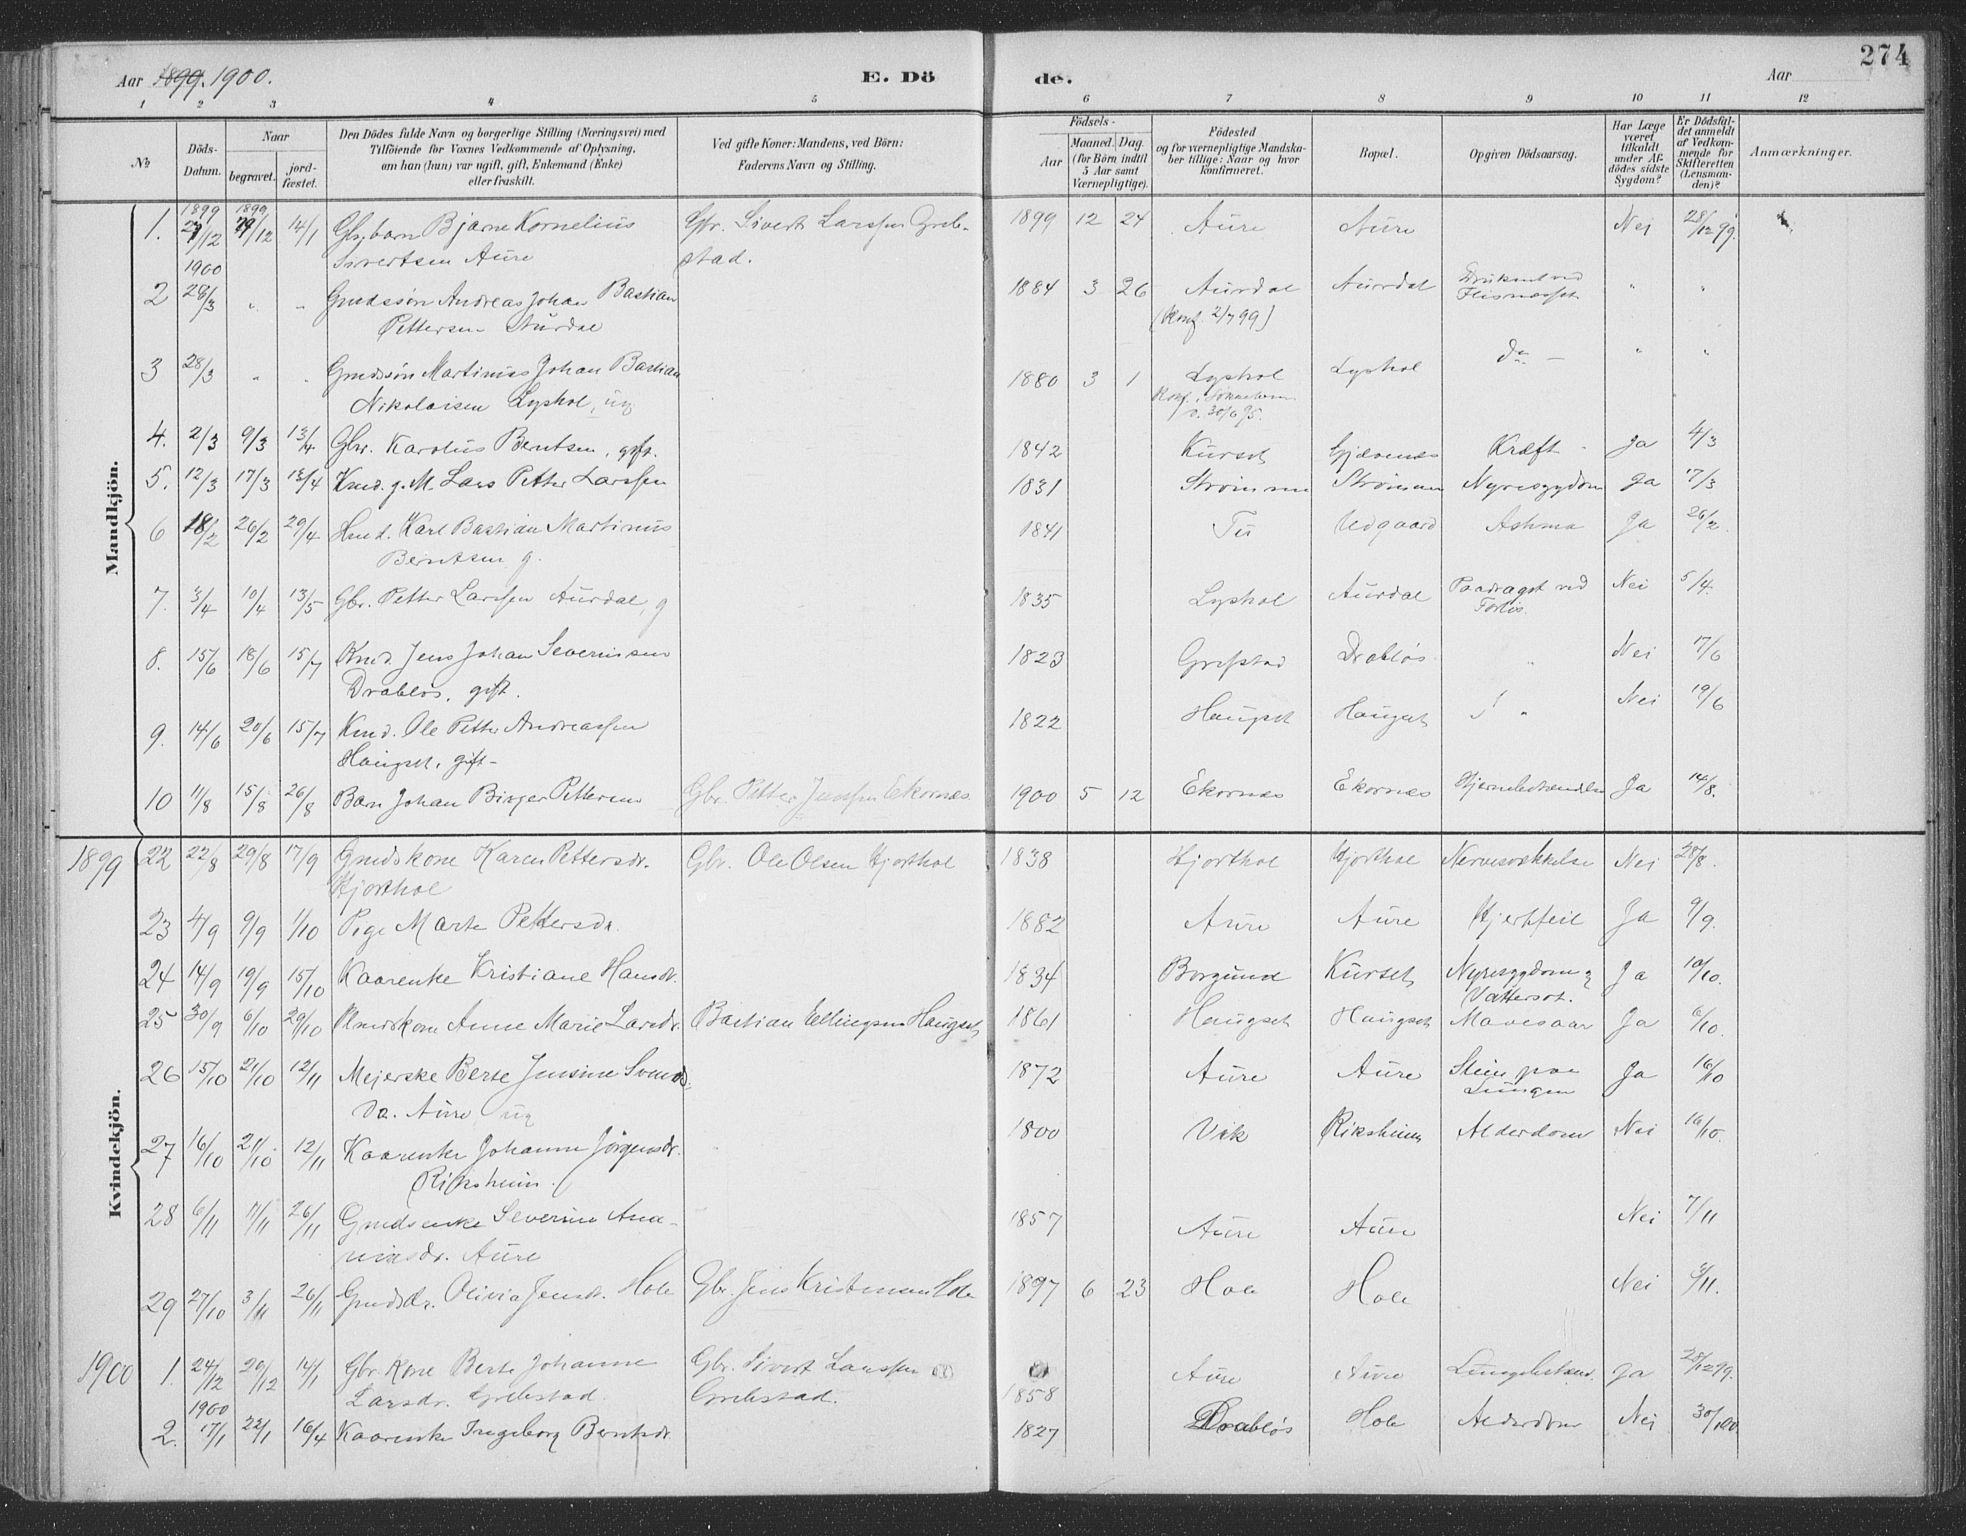 274
Aar 1899. 1900.
E. Döde.
Aar
1 2 3 4 5 6 7 8 9 10 11 12
№
Döds-Datum.
Naar
begravet.
jord-fæstet.
Den Dödes fulde Navn og borgerlige Stilling (Næringsvei) med
Tilföiende for Voxnes Vedkommende af Oplysning,
om han (hun) var ugift, gift, Enkemand (Enke)
eller fraskilt.
Ved gifte Koner: Mandens, ved Börn:
Faderens Navn og Stilling.
Födsels-
Aar
Maaned. Dag.
(for Börn indtil
5 Aar samt
Værnepligtige).
Födested
og for værnepligtige Mandska-
ber tillige: Naar og hvor
konfirmeret.
Bopæl.
Opgiven Dödsaarsag.
Har Læge
været
tilkaldt
under Af-
dödes sidste
Sygdom?
Er Dödsfal-
det anmeldt
af Vedkom-
mende for
Skifteretten
(Lensman-
den)?
Anmærkninger.
Mandkjön.
1899 1899
1. 27/12 29/12 14/1 Gbr. barn Bjarne Kornelius Gbr. Sivert Larssen Greb- 1899 12 24 Aure Aure Nei 28/12 99.
Sivertsen Aure stad.
1900
2 28/3 " " Gmdssøn Andreas Johan Bastian 1884 3 26 Aurdal Aurdal Druknet ved " "
Pettersen Aurdal (Konf. 2/7 99) Flisnæsset
3 28/3 " " Gmdssøn Martinus Johan Bastian 1880 3 1 Lyshol Lyshol do — " "
Nikolaisen Lyshol, ug Konf. i
v. 30/6 95.
4. 2/3 9/3 13/4 Gbr. Karolus Berntsen, gift. 1842 Kurset Gjævenes Kræft - Ja 4/3
5. 12/3 17/3 13/4 Kmd. g. M. Lars Petter Larssen 1831 Strømmen Strømmen Nyresygdom Ja 17/3
6 18/2 26/2 29/4 Hmd. Karl Bastian Martinus 1841 Tu Vedgaard Asthma Ja 26/2
Berntsen g.
7. 3/4 10/4 13/5 Gbr. Petter Larssen Aurdal, g 1835 Lyshol Aurdal Paadraget ved Nei 5/4
Forlis.
8. 15/6 18/6 15/7 Kmd. Jens Johan Severinsen 1823 Grefstad Drabløs " Nei 17/6
Drabløs, gift.
9. 14/6 20/6 15/7 Kmd. Ole Petter Andreassen 1822 Haugset Haugset " Nei 19/6
Haugset, gift-
10 11/8 15/8 26/8 Barn Johan Birger Pettersen Gbr. Petter Jenssen Ekornæs 1900 5 12 Ekornæs Ekornæs Hjernebetændelse Ja 14/8.
Kvindekjön.
1899 22 22/8 29/8 17/9 Gmdskone Karen Pettersdr. Gbr. Ole Olsen Hjorthol 1838 Hjorthol Hjorthol Nervesvækkelse Nei 28/8.
Hjorthol
23 4/9 9/9 1/10 Pige Marte Pettersdr. 1882 Aure Aure Hjertfeil Ja 9/9.
24 14/9 19/9 15/10 Kaarenke Kristiane Hansdr. 1834 Borgund Kurset Nyresygdom og Ja 10/10.
Vattersot.
25 30/9 6/10 29/10 Kmdskone Anne Marie Larsdr. Bastian Ellingsen Haugset 1861 Haugset Haugset Mavesaar Ja 6/10.
26 15/10 21/10 12/11 Meierske Berte Jensine Svends- 1872 Aure Aure Steen paa Ja 16/10
Dr. Aure ug Lungen
27 16/10 21/10 12/11 Kaarenke Johanne Jørgensdr. 1800 Vik Riksheim Alderdom Nei 16/10.
Riksheim.
28 6/11 11/11 26/11 Gmdsenke Severine Ana- 1857 Aure Aure Nei 7/11
niasdr. Aure
29 27/10 3/11 26/11 Gmdsdr. Olivia Jensdr. Hole Gbr. Jens Kristensen Hole 1897 6 23 Hole Hole Nei 3/11.
1900 1. 24/12 29/12 14/1 Gbr. Kone Berte Johanne Gbr. Sivert Larssen Aure Aure Lungebetænd. Ja 28/12 99.
Larsdr. Grebstad. Grebstad. 1858
1900
2. 17/1 22/1 16/4 Kaarenke Ingeborg Berntsdr. 1827 Drabløs Hole Alderdom Nei 30/1 00.